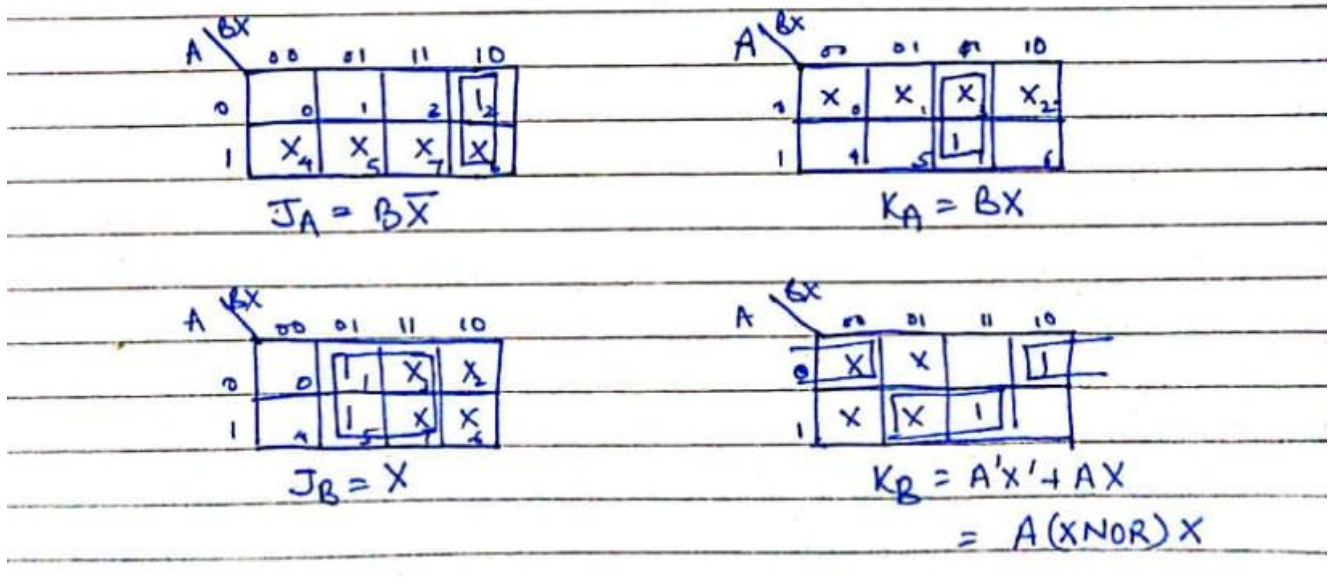 A BX 00 01 11 10
0 0 1 2 1 2
1 X4 X5 X7 X6
J_A = BX̅
A BX 00 01 11 10
0 X0 X1 X3 X2
1 4 5 1 7 6
K_A = BX
A BX 00 01 11 10
0 0 1 1 X3 X2
1 4 1 5 X7 X6
J_B = X
A BX 00 01 11 10
0 X X 1
1 X X 1
K_B = A'X' + AX
= A (XNOR) X